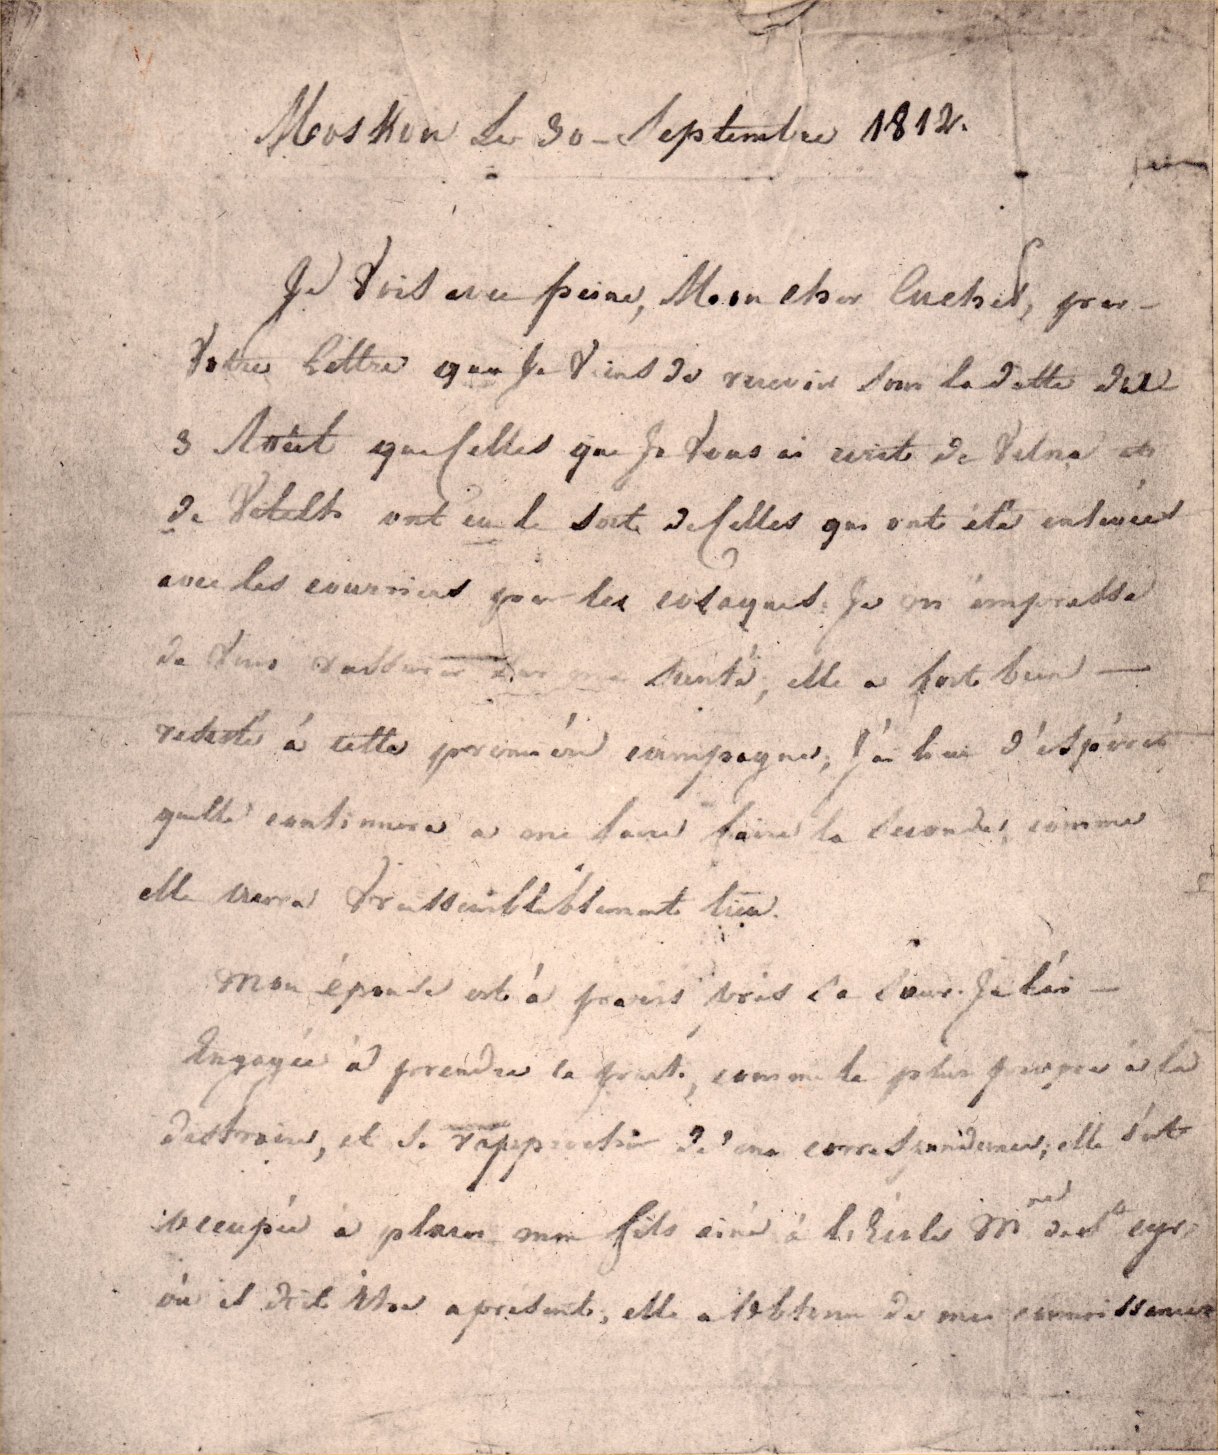 Moskou Le 30 Septembre 1812.
Je Vois avec peine, Mon cher Cuchet, par
Votre Lettre que Je Viens de recevoir sous la datte du
3 Août que Celles que Je Vous ai ecrit de Vilna et
de Vitelk ont eu le sort de Celles qui ont été enlevées
avec les courriers par les cosaques. Je m'empresse
de Vous rassurer sur ma santé, elle a fort bien
resisté à cette premiere campagne, J'ai lieu d'espérer
quelle continuera a me faire la seconde, comme
elle aura Vraissemblablement lieu.
Mon épouse est à paris près sa soeur. Je l'ai
Engagée à prendre ce parti, comme le plus propre à la
distraire, et se rapprocher de ma correspondance, elle s'est
occupée à placer mon fils ainé à l'École Mre de St cyr,
où il doit être apresent, elle a obtenu de mes connoissances